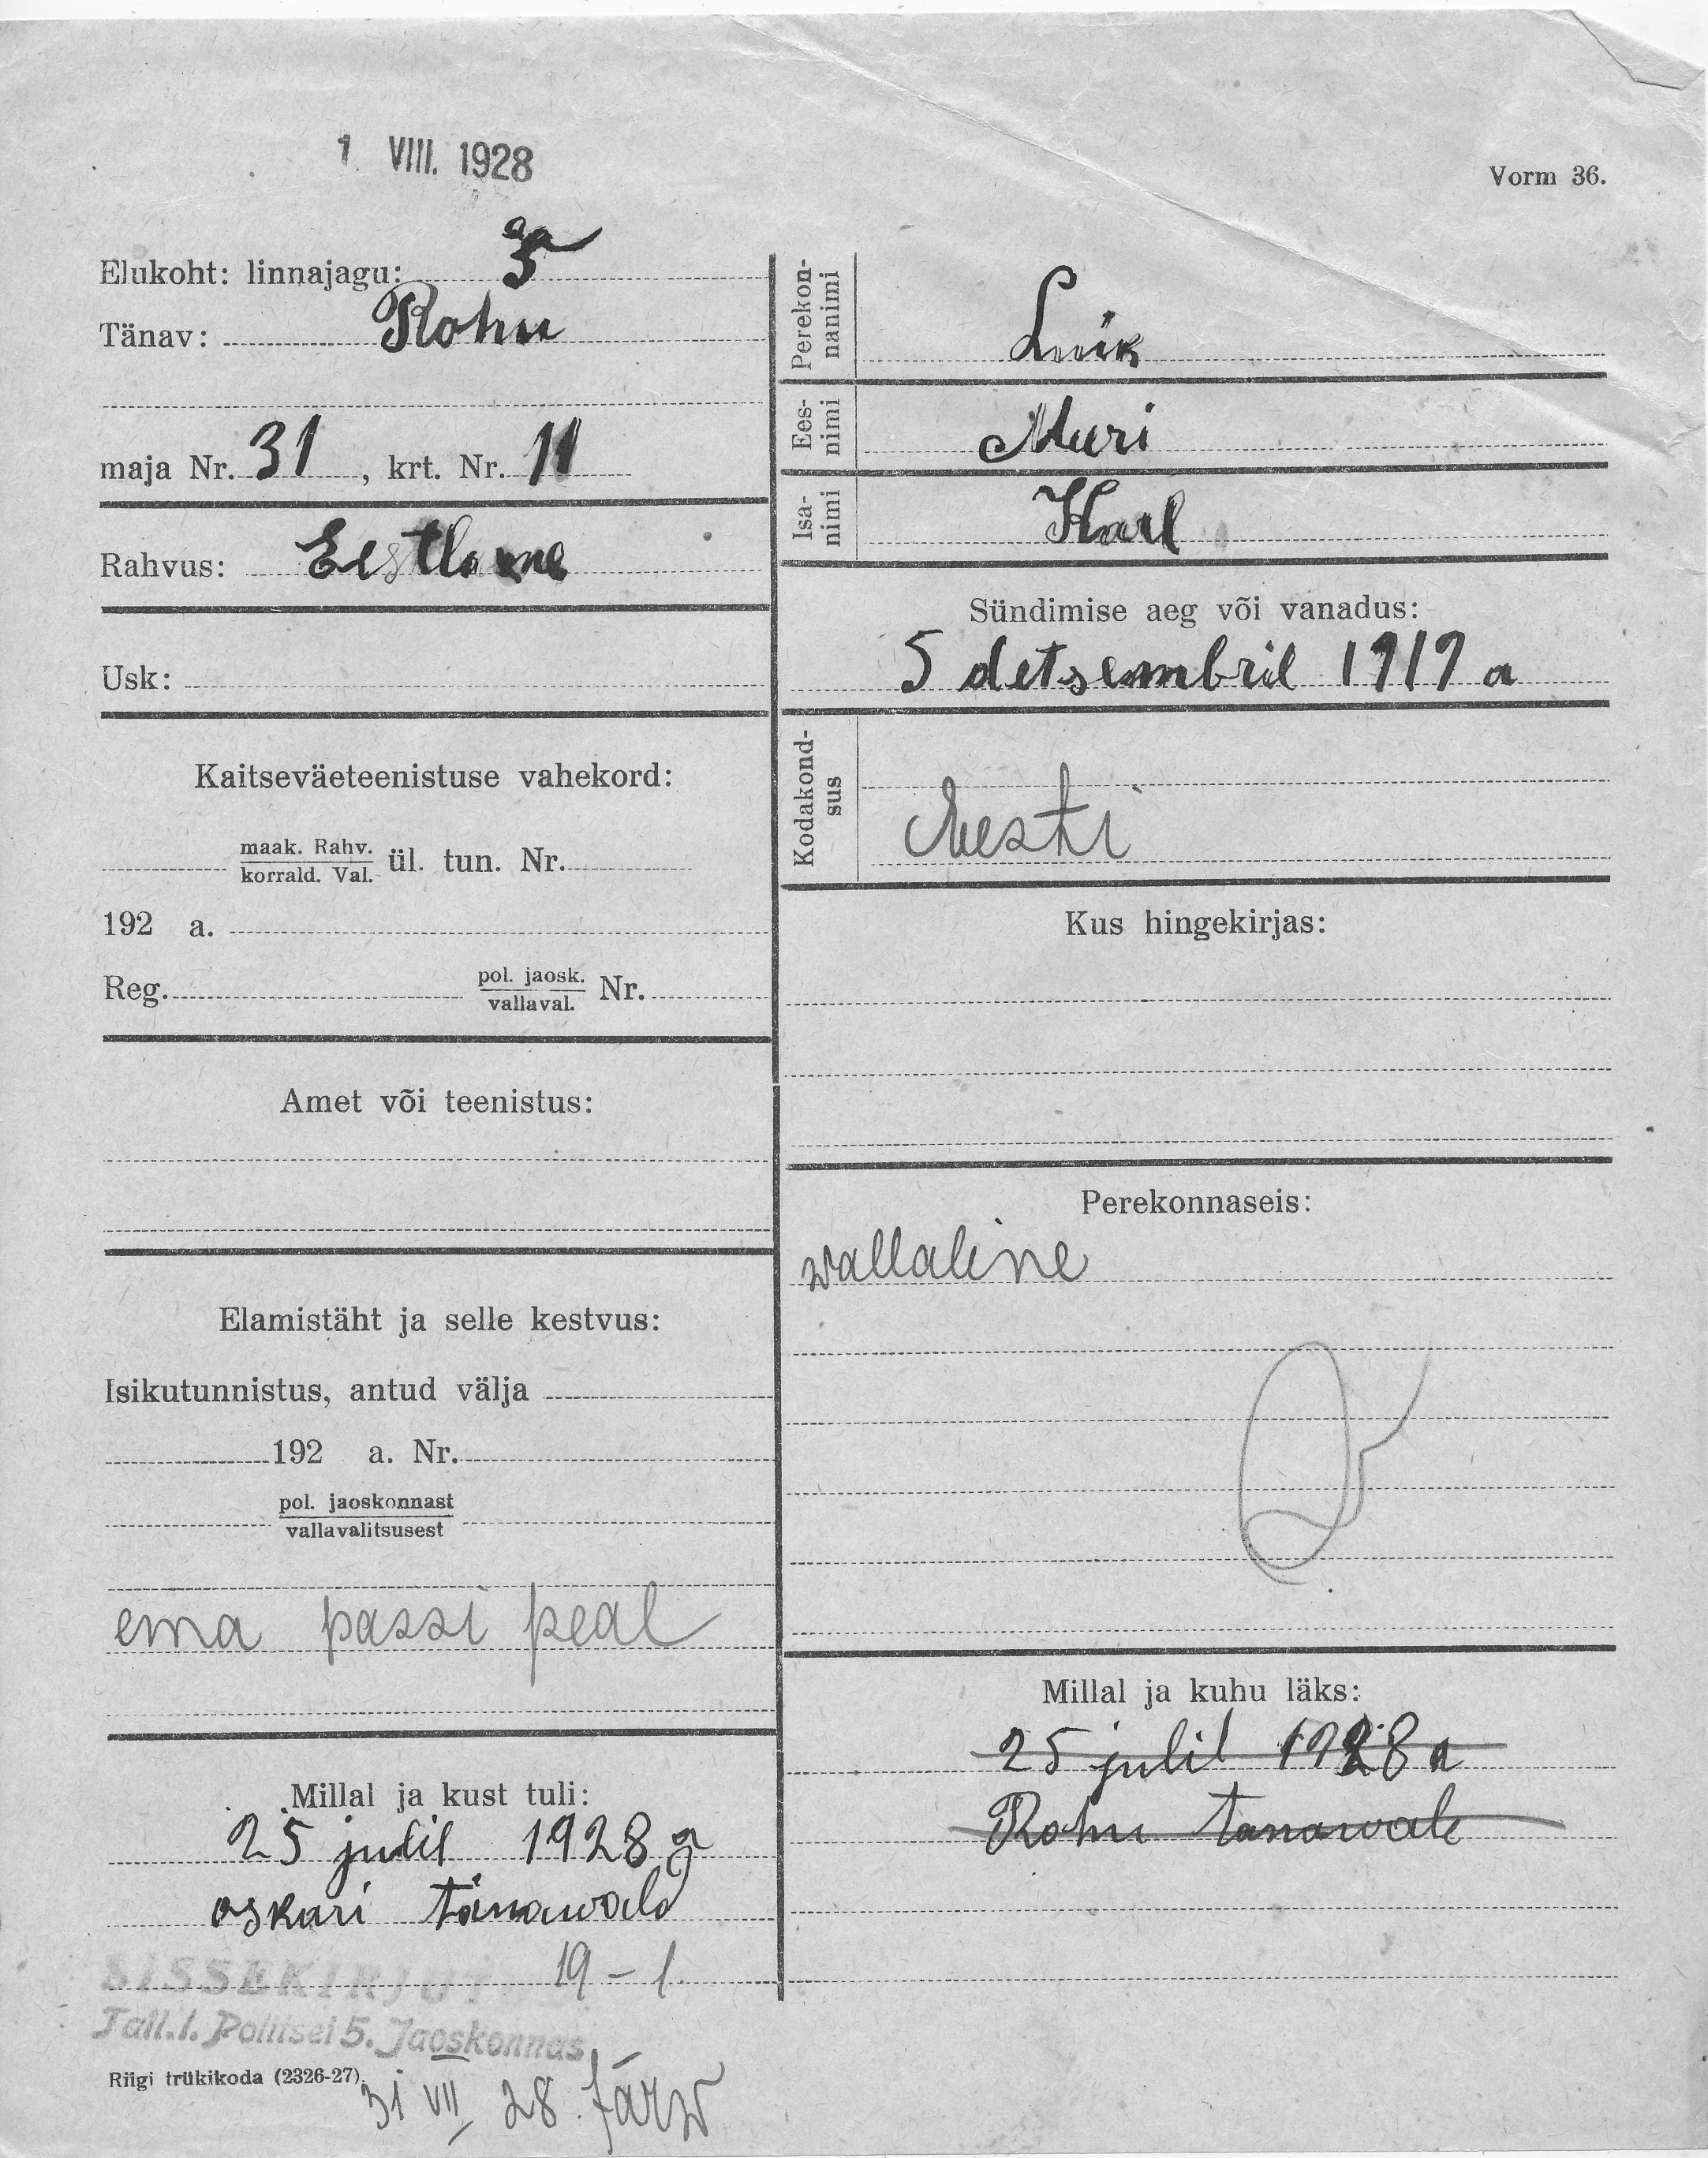 1 VIII. 1928
Vorm 36.
Elukoht: linnajagu: 5
Tänav: Rohu
maja Nr. 31, krt. Nr. 11
Rahvus: Eestlane
Usk:
Kaitseväeteenistuse vahekord:
maak. Rahv.
korrald. Val. ül. tun. Nr.
192 a.
Reg. pol. jaosk.
vallaval. Nr.
Amet või teenistus:
Elamistäht ja selle kestvus:
Isikutunnistus, antud välja
192 a. Nr.
pol. jaoskonnast
vallavalitsusest
ema passi peal
Millal ja kust tuli:
25 julil 1928 a
oskari tänawald
19 – 1.
SISSEKIRJUT
Tall.l. Politsei 5. Jaoskonnas
Riigi trükikoda (2326-27).
31 VII 28. Järw
Perekon-
nanimi
Luik
Ees-
nimi
Meeri
Isa-
nimi
Karl
Sündimise aeg või vanadus:
5 detsembril 1919 a
Kodakond-
sus
Eesti
Kus hingekirjas:
Perekonnaseis:
wallaline
Millal ja kuhu läks:
25 julil 1928 a
Rohu tanawale